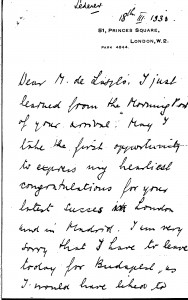 Lederer
18th III 1930
51, PRINCES SQUARE,
LONDON, W.2.
PARK 4944.
Dear M. de László. I just
learned from the "Morning Post
of your arrival. May I
take the first opportunity
to express my heartiest
congratulations for your
latest succes in London
and in Madrid. I am very
sorry that I have to leave
today for Budapest, as
I would have liked to